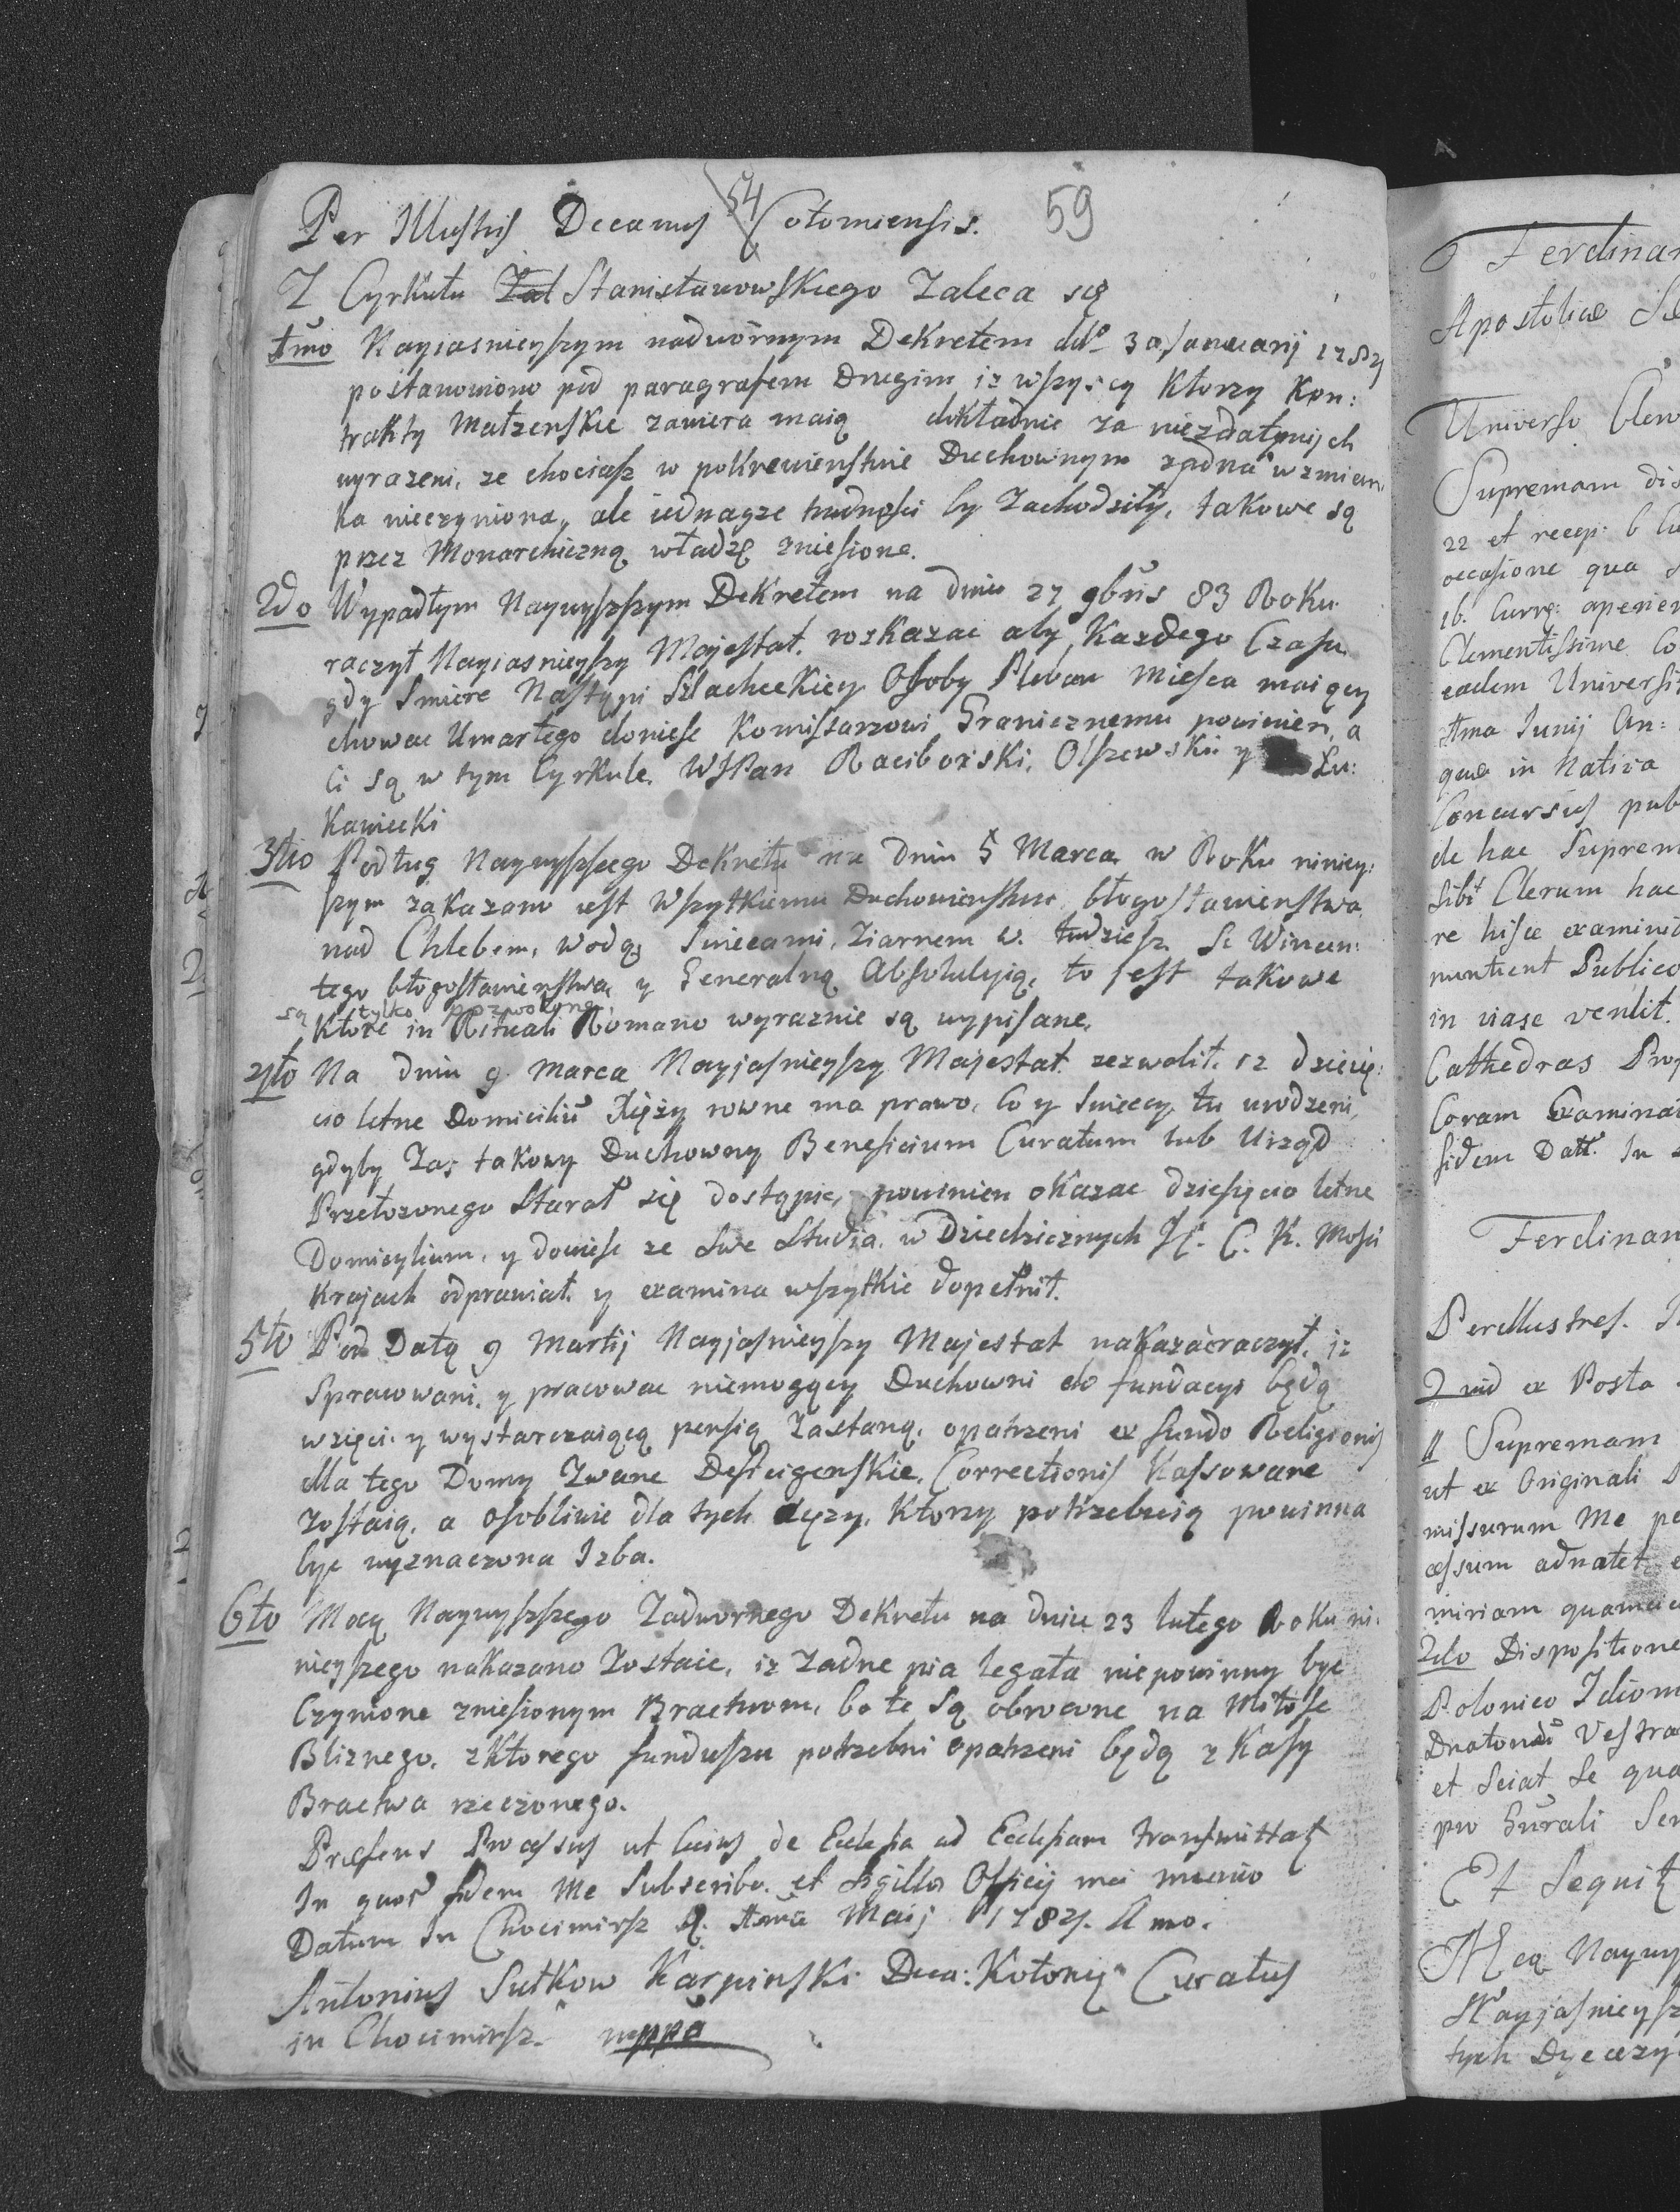 54 59
Per Illustris Decanus Cołomiensis.
Z Cyrkułu Zal Stanisławowskiego Zaleca się
1mo Nayiasnieyszym nadwórnym Dekretem ddo 30 Januarij 1784
postanowiono pod paragrafem Drugim iz wszyscy Ktorzy Kon:
trakty Małzenskie zawiera maią dokładnie za niezdatnych
wyrazeni, ze chociasz w pokrewienstwie Duchownym zadna wzmian
ka nieczyniona, ale iednagze trudnosci by Zachodziły, takowe są
przez Monarchiczną władzę zniesione.
2do Wypadłym Naywyszszym Dekretem na dniu 27 9bris 83 Roku
raczył Nayiasnieyszy Majestat rozkazac aby Kazdego Czasu
gdy Smierc Nastąpi Szlacheckiey Osoby Pleban miesca maiący
chowac Umarłego doniesc Komissarzowi Graniecznemu powinien, a
Ci są w tym Cyrkule. WJPan Raciborski, Olszewski y Łu:
Kawiecki
3tio Podług Naywyszszego Dekretu na dniu 5 Marca w Roku niniey:
szym zakazano iest Wszytkiemu Duchowienstwu błogosławienstwa
nad Chlebem, wodą, Swiecami, Ziarnem S. tudziesz S. Wincen:
tego błogosławienstwa y Generalną Absolucyią, to jest takowe
są tylko pozwolone
Ktore in Rituali Romano wyraznie są wypisane.
4to Na dniu 9 Marca Nayjasnieyszy Majestat zezwolił iz dziesię:
cio letne Domicilium Xięzy rowne ma prawo, co y Swieccy tu urodzeni,
gdyby Zas takowy Duchowny Beneficium Curatum lub Urząd
Przełozonego Starał się dostąpic, powinien okazac dziesięcio letne
Domicylium, y doniesc ze Swe Studia w Dziedzicznych J. C. K. Mosci
Krajach odprawiał y examina wszytkie dopełnił.
5to Pod Datą 9 Martij Nayjasnieyszy Majestat nakazać raczył, iz
Spracowani y pracowac niemogący Duchowni do fundacyi będą
wzięci y wystarczaiącą pensią Zastaną opatrzeni ex fundo Religionis
dla tego Domy Zwane Correctionis Kassowane
Zostaią, a osobliwie dla tych Xięzy, Ktorzy potrzebuią powinna
byc wyznaczona Izba.
6to Mocą Naywyszszego Zadwornego Dekretu na dniu 23 lutego Roku ni:
nieyszego nakazano Zostaie, iz Zadne pia legata niepowinny byc
Czynione zniesionym Bractwom, bo te są obrocone na Miłosc
Blizniego, z Ktorego funduszu potrzebni opatrzeni będą z Kasy
Bractwa rzeczonego.
Præsens Processus ut Citius de Ecclesia ad Ecclesiam transmittatur
In quor fidem Me Subscribo et Sigillo Officij mei munio
Datum In Chocimirsz Maij 1784. Anno.
Antonius Sułkow Karpinski Deca: Kołomy Curatus
in Chocimirsz mppa
Ferdinan
Apostolicæ Se
Universo Cler
Supremam dis
22 et recep: 6
occasione qua
16. Curr: aperien
Clementissime Co
eadem Universi
Junij An:
quæ in Nativa
Concursus pub
de hac Suprem
Sibi Clerum hac
re hisce examina
nuntient Publico
in viase venlit.
Cathedras Pro
Coram Examinat
fidem Datt. In
Ferdinan
Perillustres.
Quid ex Posta
Supremam
ut ex Originali
missurum Me pe
cessum adnatet
miriam quamcu
2do Dispositione
Polonico Idiom
Vestra
et Sciat Se qua
pro Gurali Ser
Et Sequitur
Mocą Naywy
Nayjasnieysz
tych Dyecezy